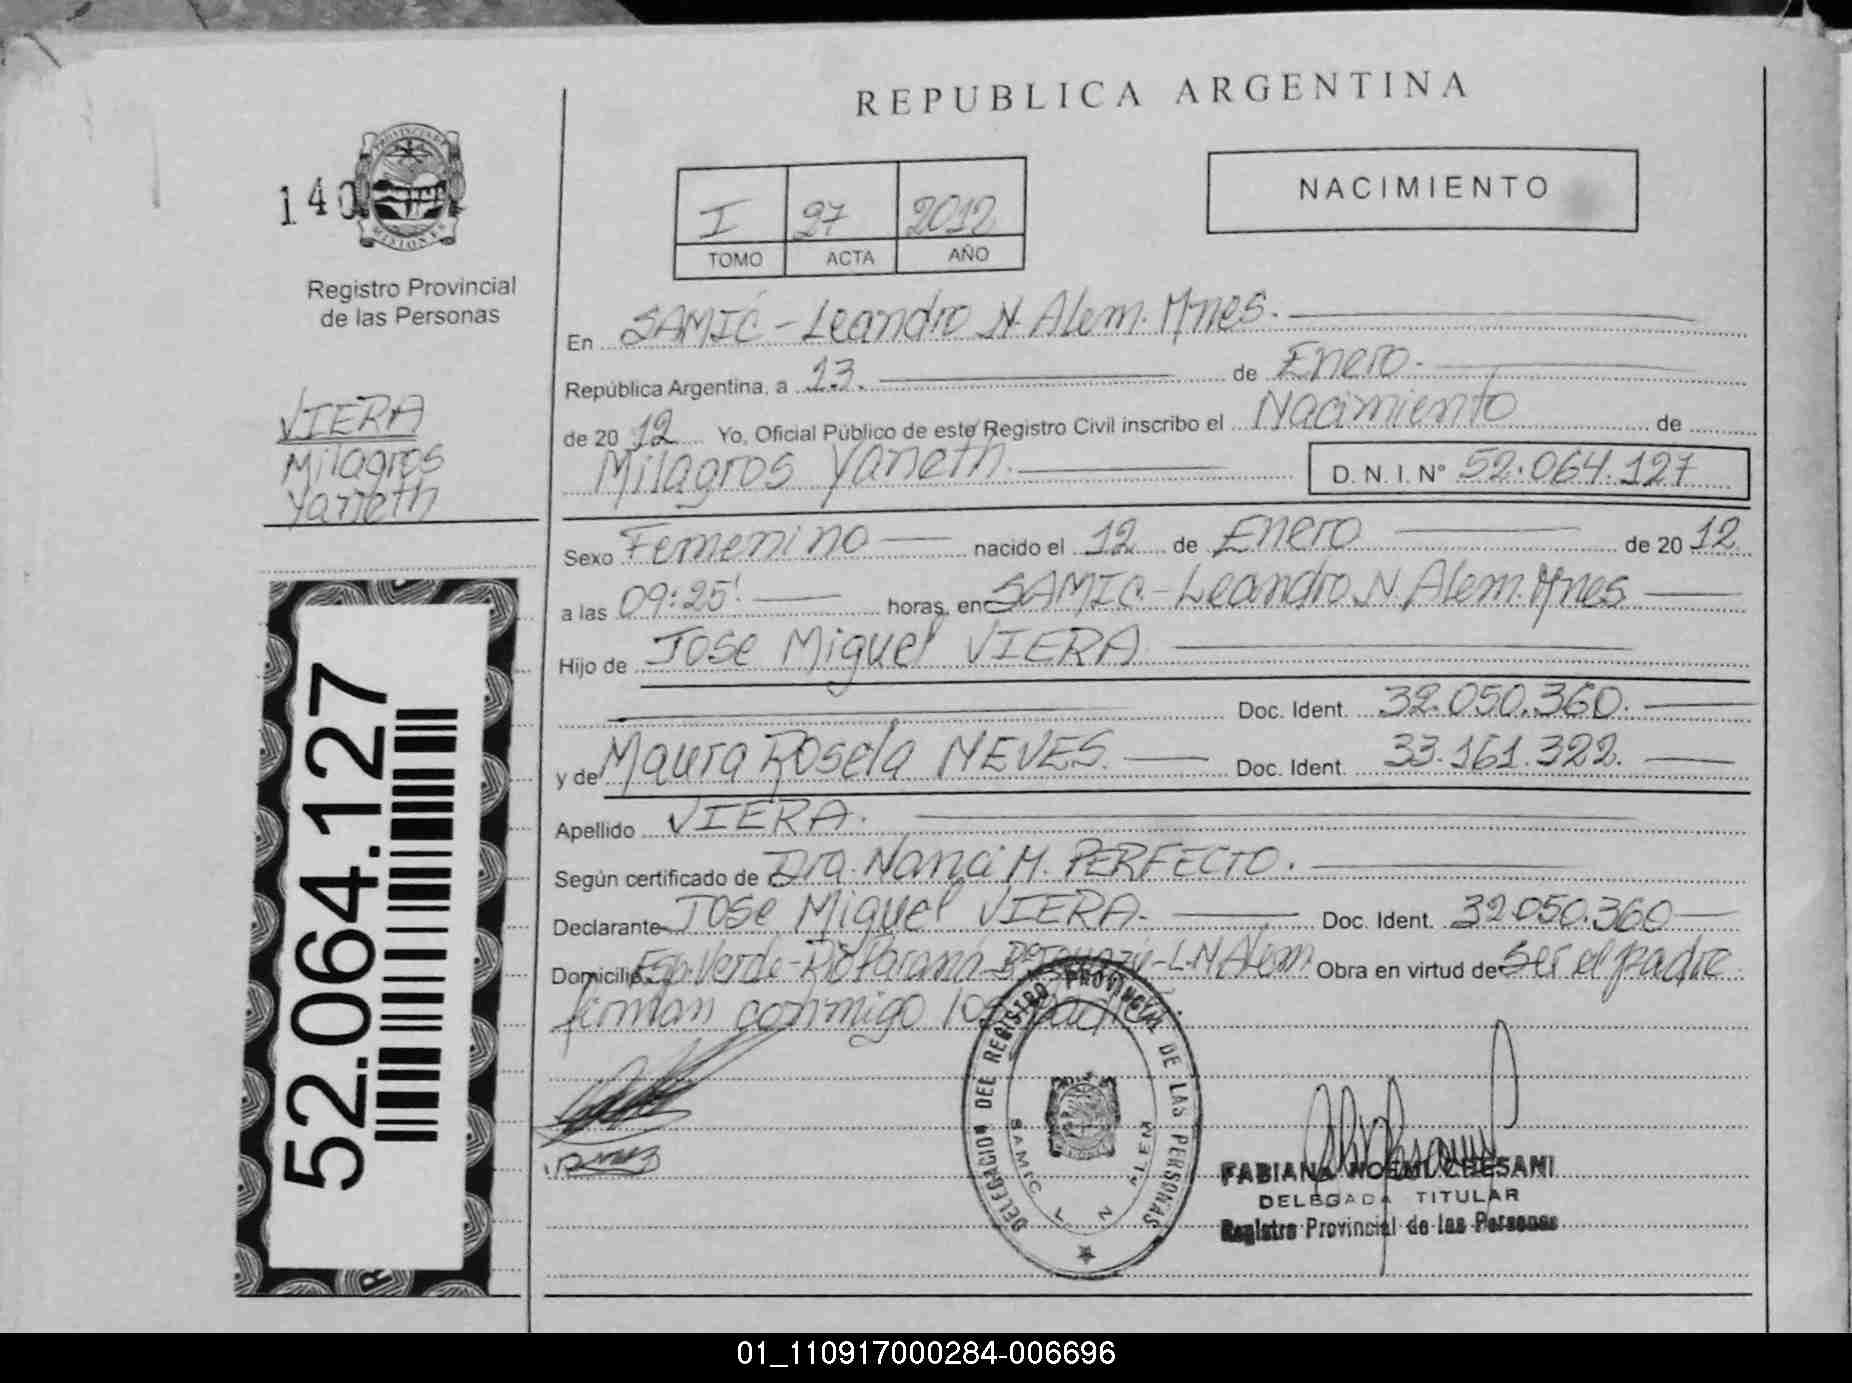 REPUBLICA ARGENTINA
NACIMIENTO
140
PROVINCIA DE
MISIONES
Registro Provincial
de las Personas
I 97 2012
TOMO ACTA AÑO
VIERA
Milagros
Yaneth
52.064.127
En SAMIC - Leandro N. Alem. Mnes.
República Argentina, a 13. de Enero.
de 20 12 Yo, Oficial Público de este Registro Civil inscribo el Nacimiento de
Milagros Yaneth. D.N.I. N° 52.064.127
Sexo Femenino nacido el 12 de Enero de 20 12
a las 09:25' horas, en SAMIC - Leandro N. Alem. Mnes
Hijo de Jose Miguel VIERA
Doc. Ident. 32.050.360.
y de Maura Rosela NEVES. Doc. Ident. 33.161.322.
Apellido VIERA.
Según certificado de Dra. Nanci M. PERFECTO.
Declarante Jose Miguel VIERA. Doc. Ident. 32.050.360
Domicilio Esp. Verde - Río Paraná - L.N Alem Obra en virtud de ser el padre
firman conmigo los padres.
DELEGACION DEL REGISTRO PROVINCIAL DE LAS PERSONAS
SAMIC L N ALEM
FABIANA NOEMI CHESANI
DELEGADA TITULAR
Registro Provincial de las Personas
01_110917000284-006696